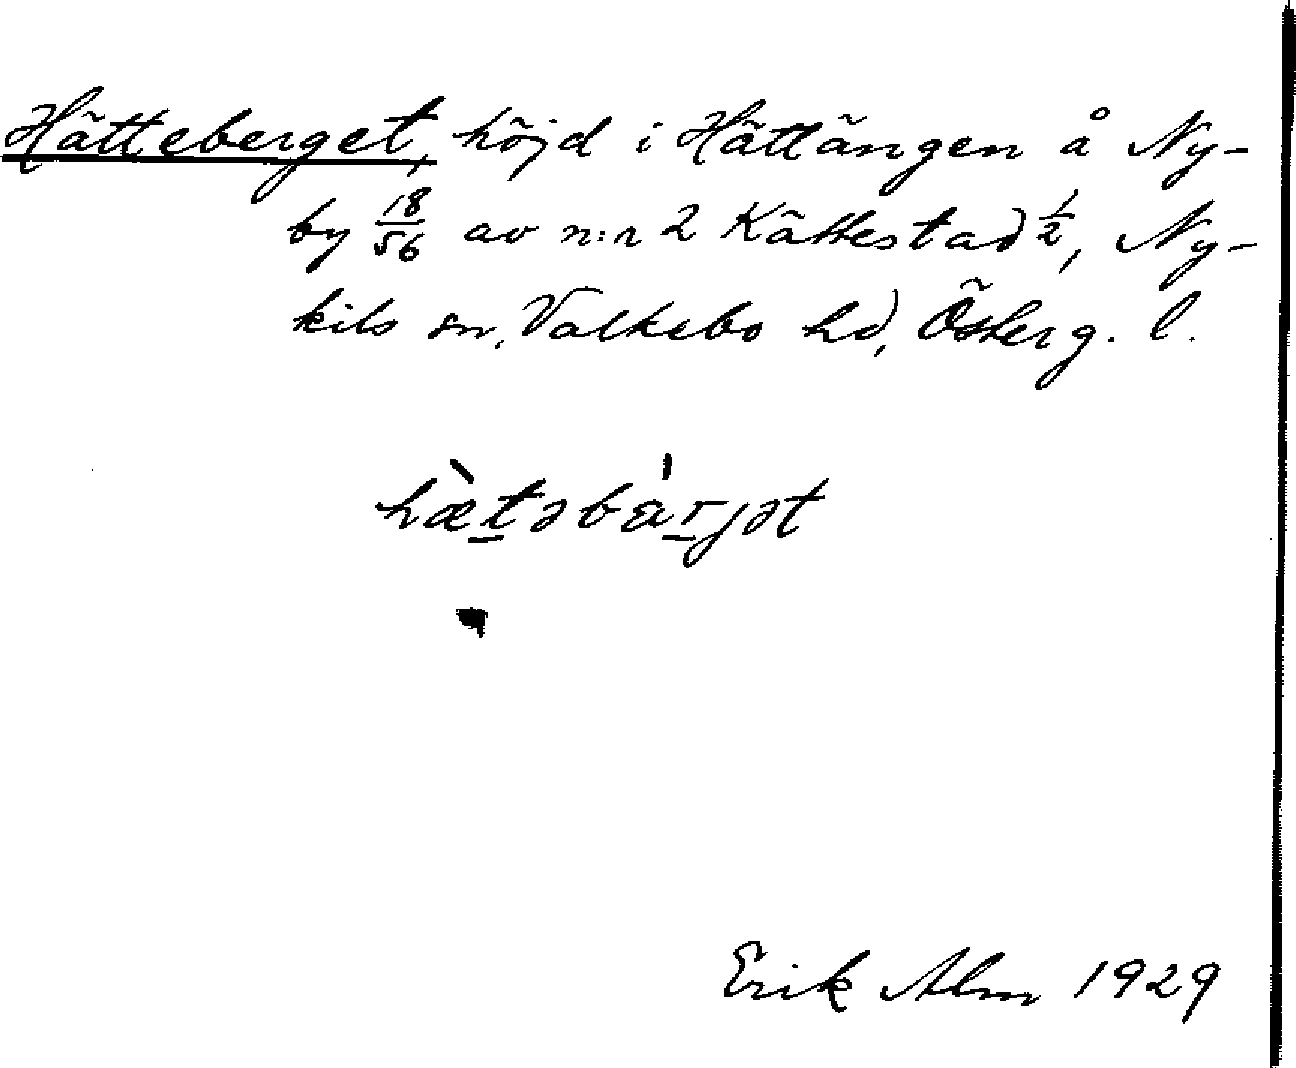 Hätteberget, höjd i Hättängen å Ny-
by 18/56 av n:r 2 Kättestad 1/2, Ny-
kils sn, Valkebo hd, Österg. l.
hæ̀tәbárjәt
Erik Alm 1929